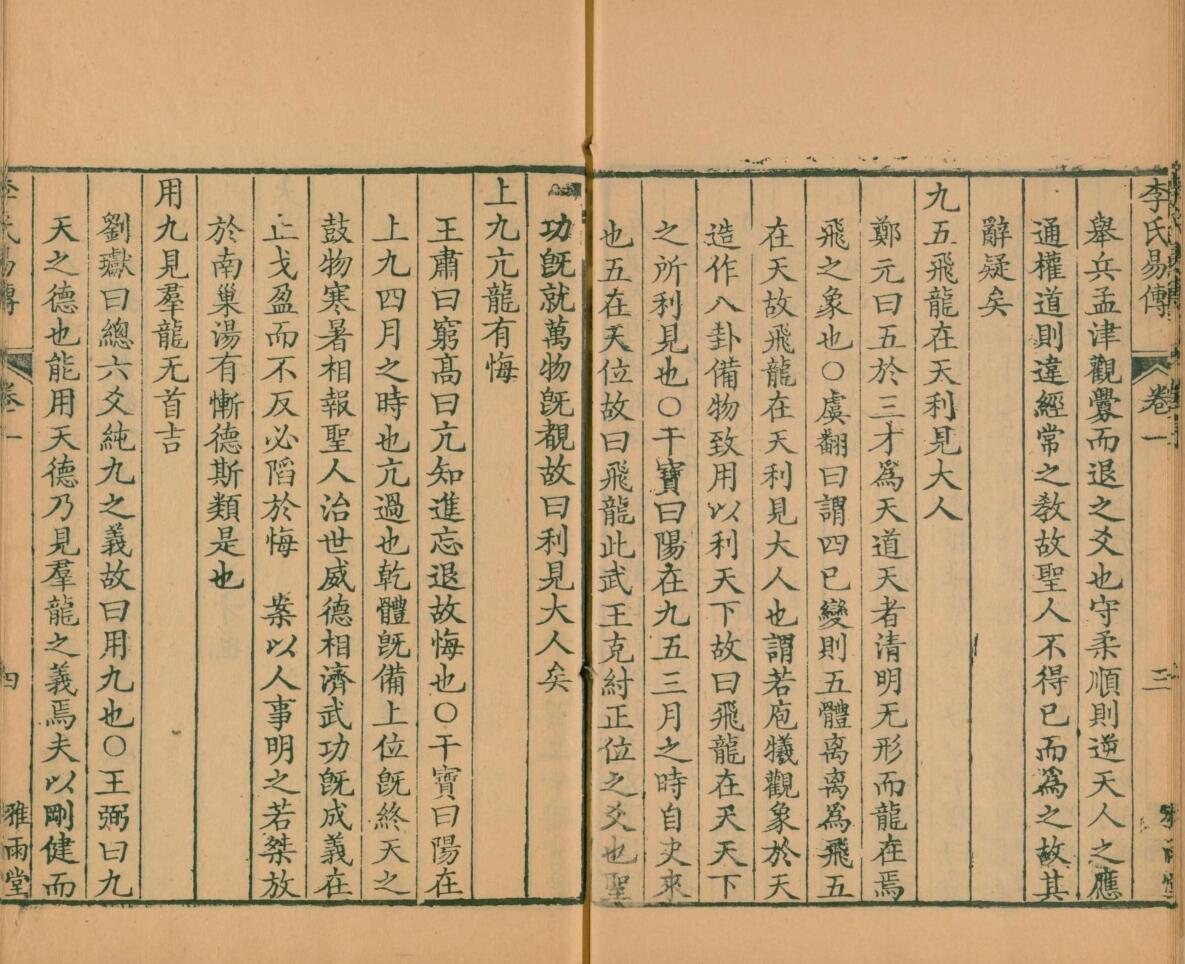 李氏易傳 卷一 三
舉兵孟津觀釁而退之爻也守柔順則逆天人之應
通權道則違經常之敎故聖人不得已而爲之故其
辭疑矣
九五飛龍在天利見大人
鄭元曰五於三才爲天道天者清明无形而龍在焉
飛之象也〇虞翻曰謂四已變則五體离离爲飛五
在天故飛龍在天利見大人也謂若庖犧觀象於天
造作八卦備物致用以利天下故曰飛龍在天天下
之所利見也〇干寶曰陽在九五三月之時自史來
也五在天位故曰飛龍此武王克紂正位之爻也聖
功旣就萬物旣覩故曰利見大人矣
上九亢龍有悔
王肅曰窮高曰亢知進忘退故悔也〇干寶曰陽在
上九四月之時也亢過也乾體旣備上位旣終天之
鼓物寒暑相報聖人治世威德相濟武功旣成義在
止戈盈而不反必陷於悔　案以人事明之若桀放
於南巢湯有慚德斯類是也
用九見羣龍无首吉
劉瓛曰總六爻純九之義故曰用九也〇王弼曰九
天之德也能用天德乃見羣龍之義焉夫以剛健而
李氏易傳 卷一 四 雅雨堂